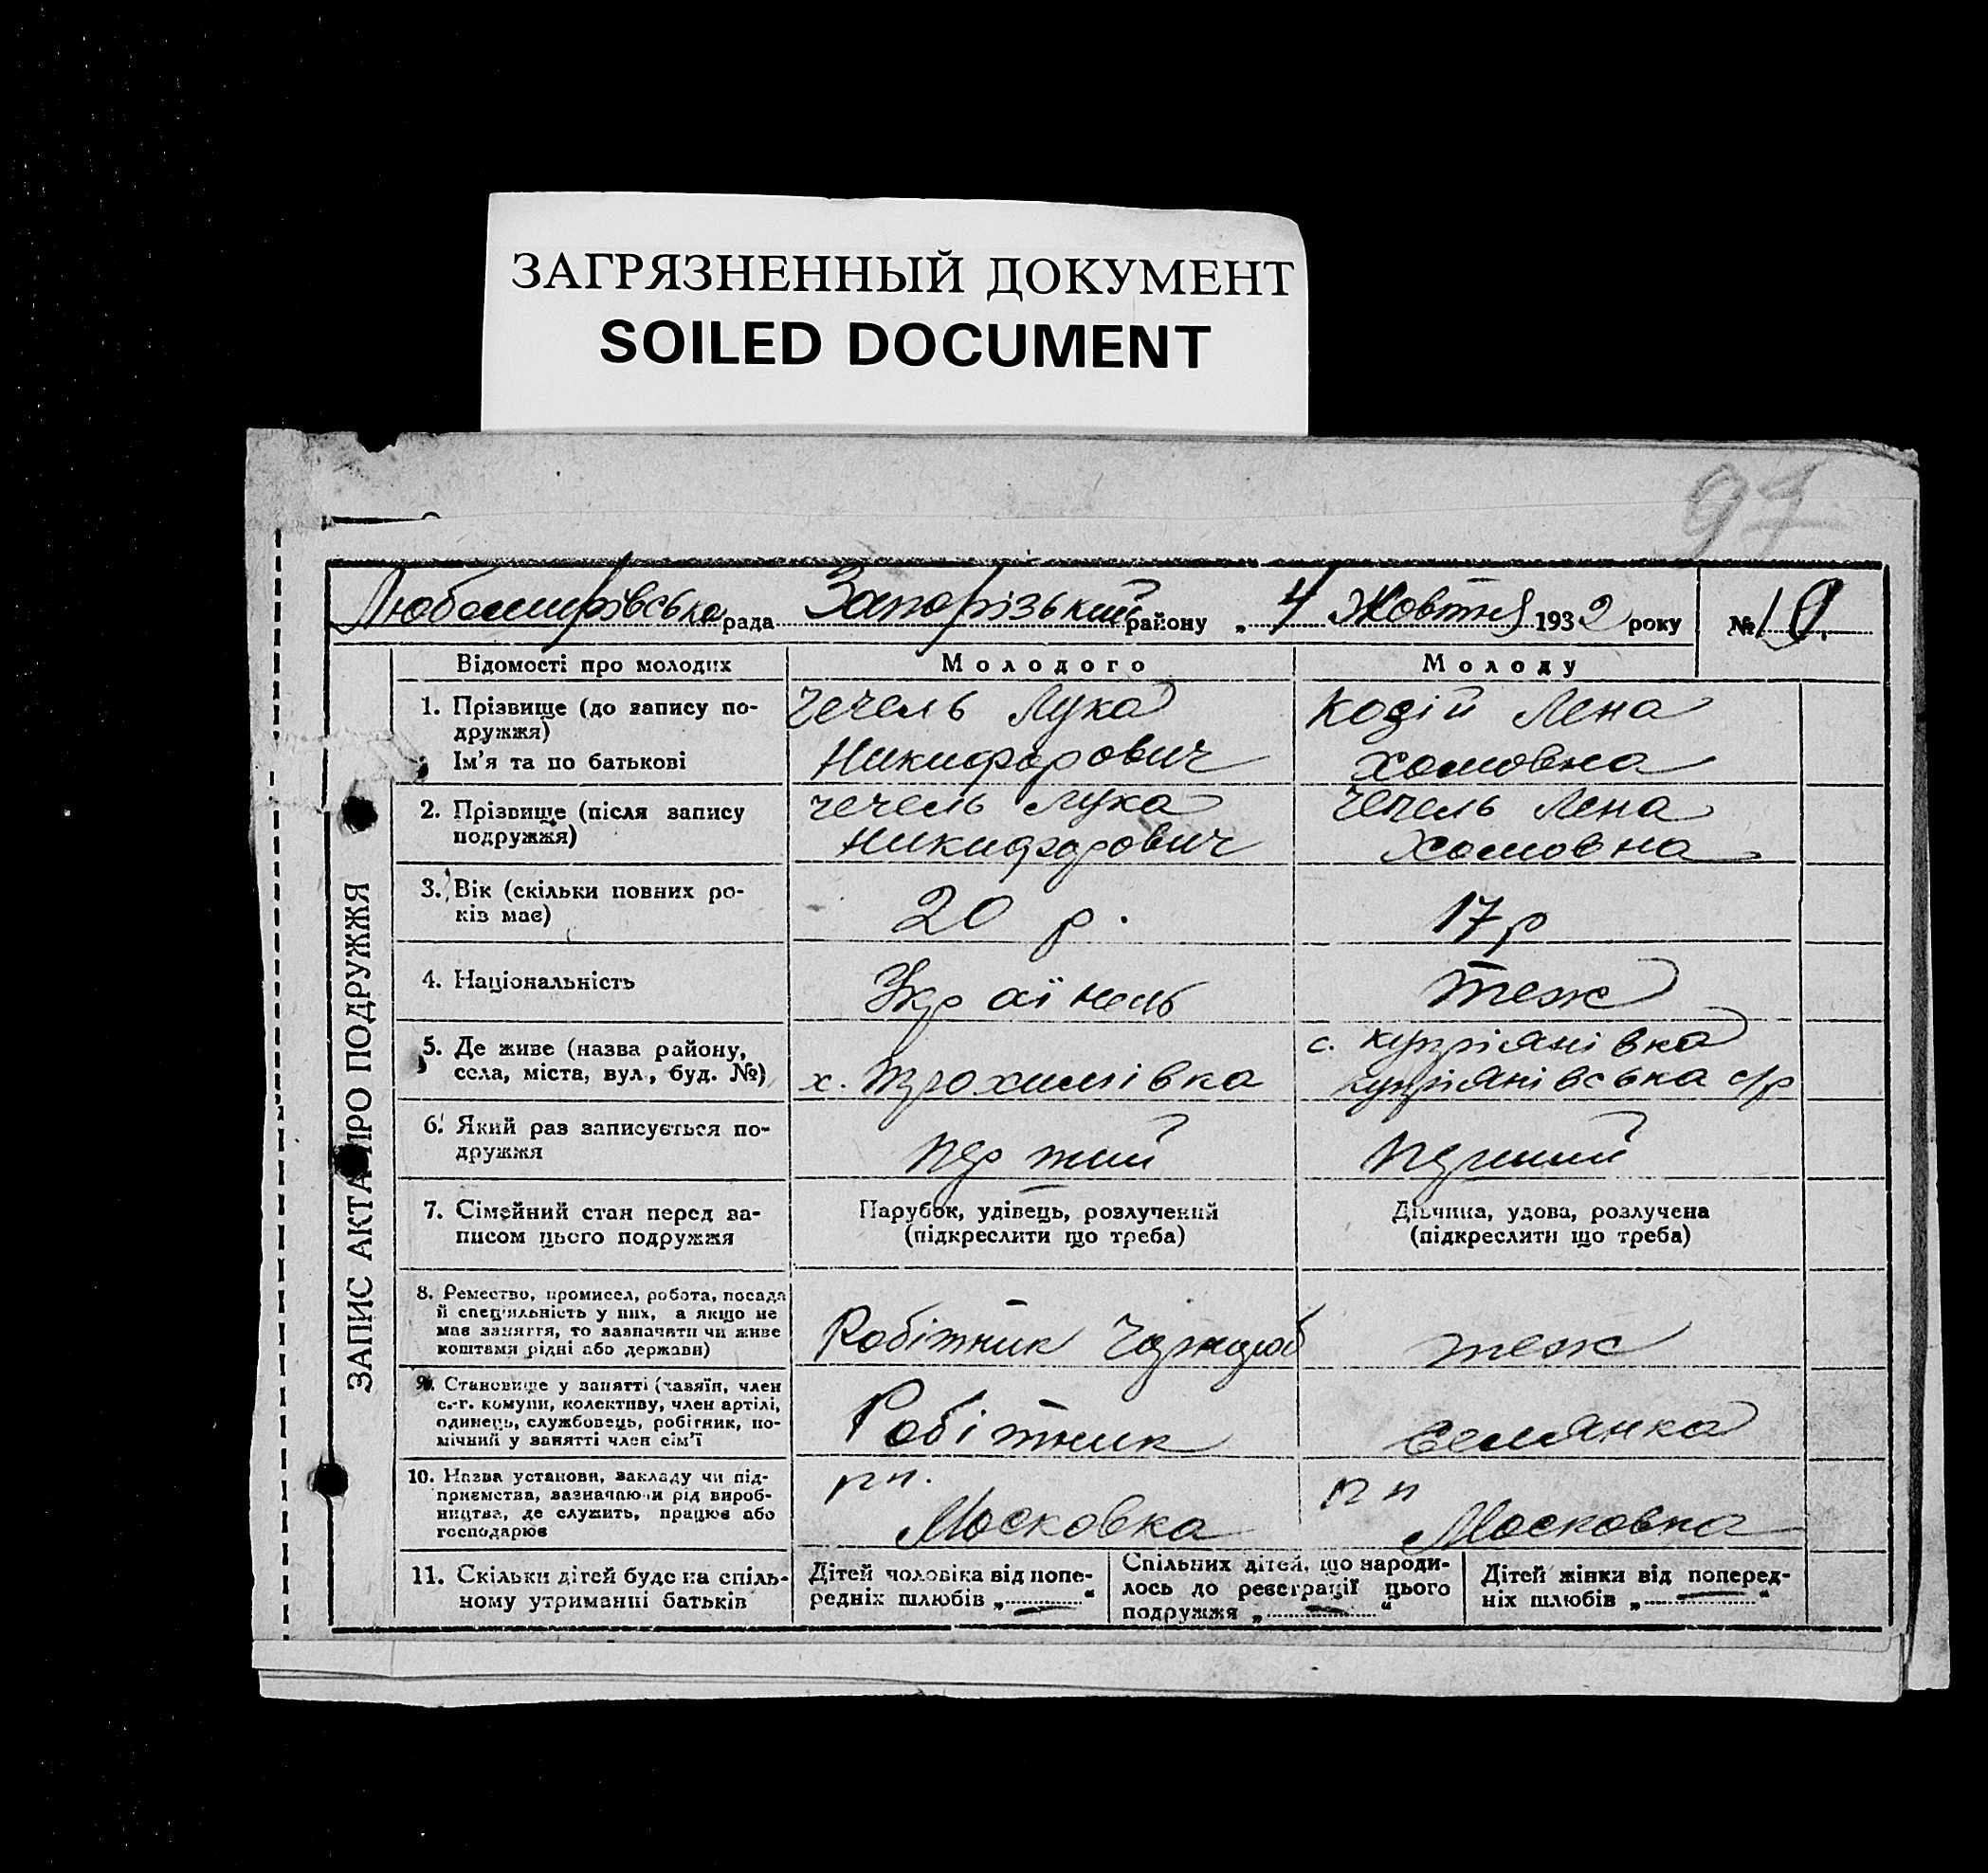 ЗАГРЯЗНЕННЫЙ ДОКУМЕНТ
SOILED DOCUMENT
97
Любомирівська рада Запорізький району „ 4 Жовтня 1932 року № 19.
ЗАПИС АКТА ПРО ПОДРУЖЖЯ
Відомості про молодих Молодого Молоду
1. Прізвище (до запису по-
дружжя)
Ім'я та по батькові
Чечель Лука
Никифорович
Кодій Лена
Хомовна
2. Прізвище (після запису
подружжя)
чечель Лука
Никифорович
Чечель Лена
Хомовна
3. Вік (скільки повних ро-
ків має)
20 р.
17 р
4. Національність
Українець
теж
5. Де живе (назва району,
села, міста, вул., буд. №)
х. Трохимівка
с. Купріянівка
Купріянівська с/р
6. Який раз записується по-
дружжя
перший
перший
7. Сімейний стан перед за-
писом цього подружжя
Парубок, удівець, розлучений
(підкреслити що треба)
Дівчина, удова, розлучена
(підкреслити що треба)
8. Ремество, промисел, робота, посада
й спеціяльність у них, а якщо не
має заняття, то зазначати чи живе
коштами рідні або держави)
Робітник
теж
9. Становище у занятті (хазяїн, член
с.-г. комуни, колективу, член артілі,
одинець, службовець, робітник, по-
мічний у занятті член сім'ї
Робітник
селянка
10. Назва установи, закладу чи під-
приємства, зазначаючи рід вироб-
ництва, де служить, працює або
господарює
рп.
Московка
рп
Московка
11. Скільки дітей буде на спіль-
ному утриманні батьків
Дітей чоловіка від попе-
редніх шлюбів „ — “
Спільних дітей, що народи-
лось до реєстрації цього
подружжя „ — “
Дітей жінки від поперед-
ніх шлюбів „ — “